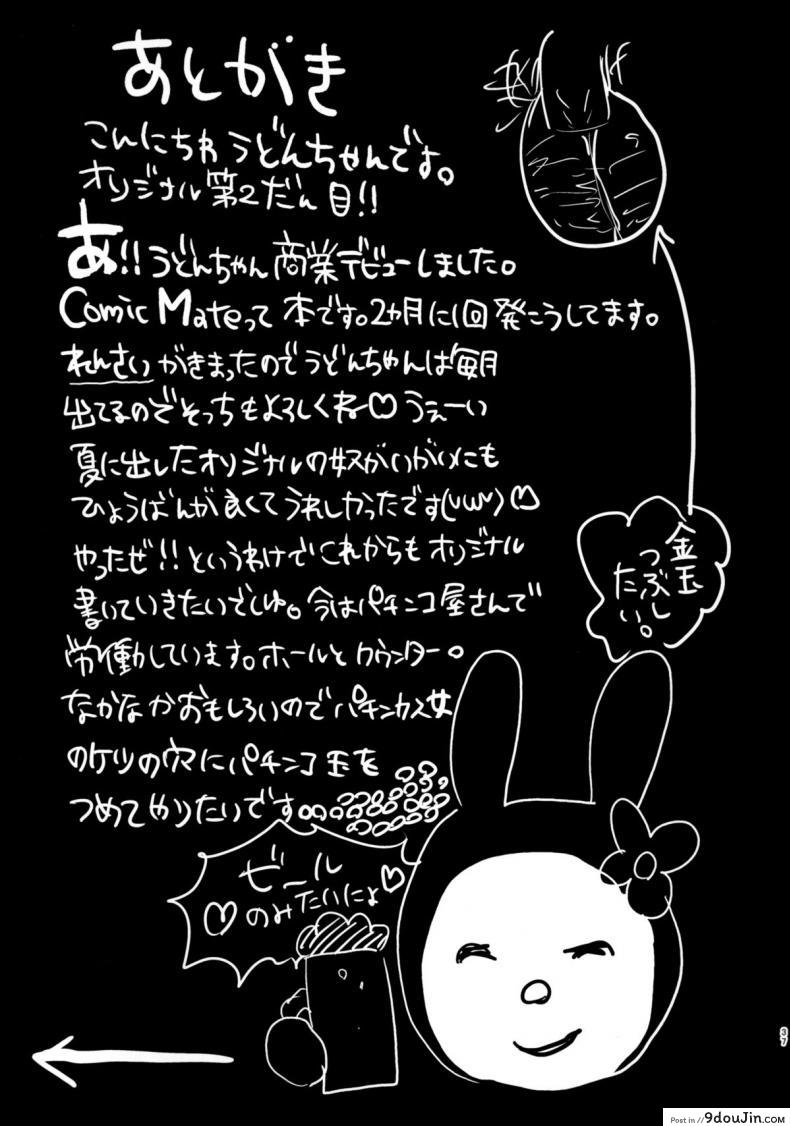 あとがき
こんにちわ うどんちゃんです。
オリジナル第2だん目!!
あ!! うどんちゃん商業デビューしました。
Comic Mateって本です。2カ月に1回発こうしてます。
れんさいがきまったのでうどんちゃんは毎月
出てるのでそっちもよろしくね♡ うぇーい
夏に出したオリジナルの奴がいがいにも
ひょうばんが良くてうれしかったです(uwu)♡
やったぜ!! というわけでこれからもオリジナル
書いていきたいでしゅ。今はパチンコ屋さんで
労働しています。ホールとカウンター。
なかなかおもしろいのでパチンカス女
のケツの穴にパチンコ玉を
つめてやりたいです
金玉
つぶし
たい。
ビール
♡のみたいにょ♡
37
Post in // 9douJin.com